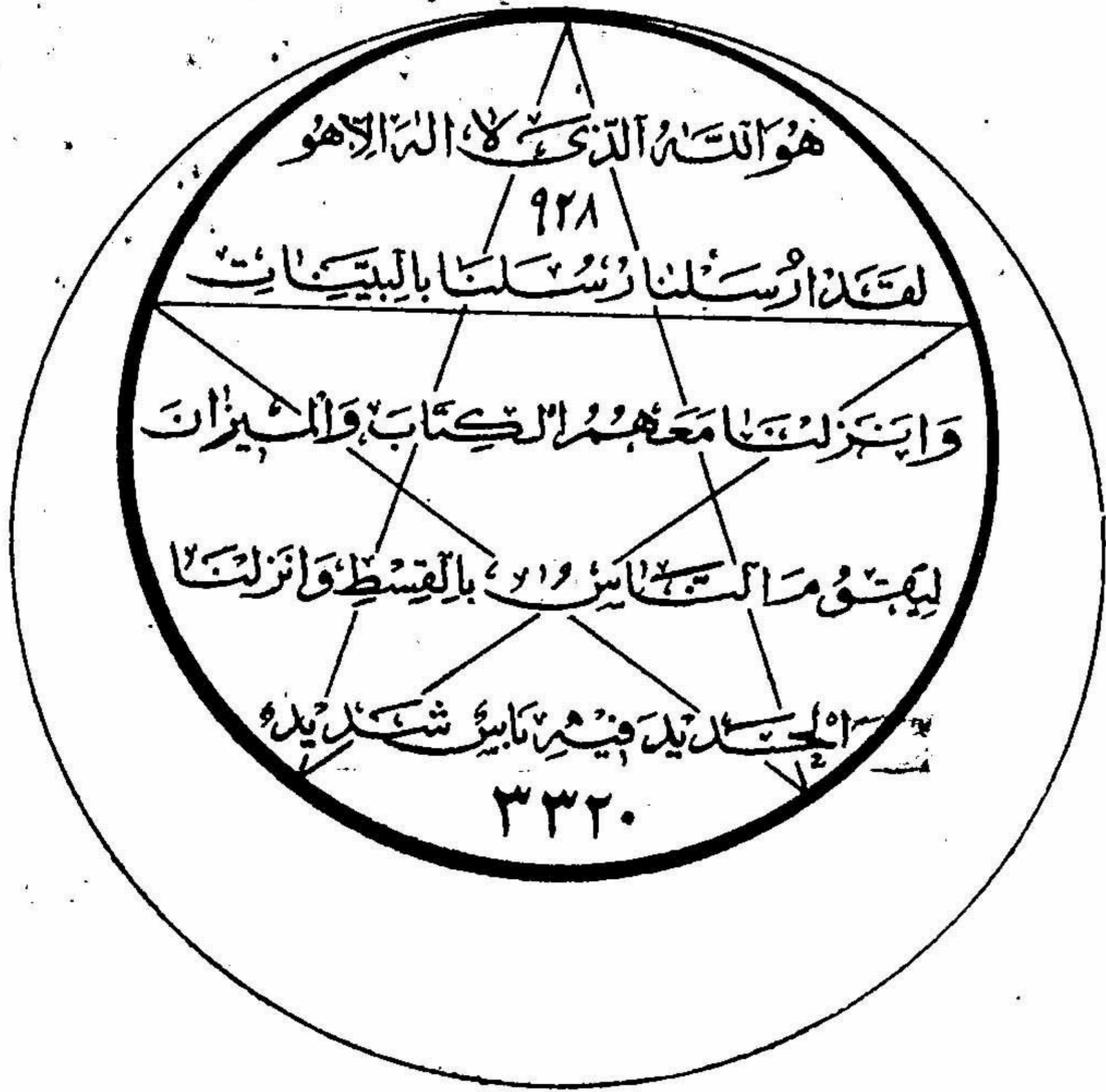 هُوَ اللّٰهُ الَّذِى لَا اِلٰهَ اِلَّا هُو
٩٢٨
لَقَدْ اَرْسَلْنَا رُسُلَنَا بِالْبَيِّنَاتِ
وَاَنْزَلْنَا مَعَهُمُ الْكِتَابَ وَالْمِيزَانَ
لِيَقُومَ النَّاسُ بِالْقِسْطِ وَاَنْزَلْنَا
الْحَدِيدَ فِيهِ بَاْسٌ شَدِيدٌ
٣٣٢٠